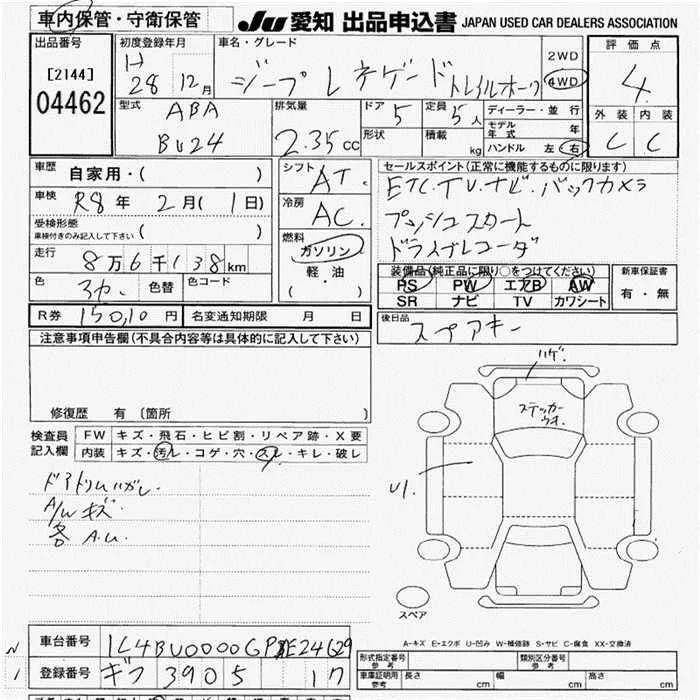 車内保管・守衛保管
JU 愛知 出品申込書 JAPAN USED CAR DEALERS ASSOCIATION
出品番号
[2144]
04462
初度登録年月
H 28 12月
車名・グレード
ジープ レネゲード トレイルホーク
2WD
4WD
評価点
4
外装 内装
C C
型式
ABA
BU24
排気量
2.35cc
ドア 5
定員 5人
形状
積載 kg
ディーラー・並行
モデル年式 年
ハンドル 左 右
車歴
自家用・( )
車検
R8年 2月( 1日)
受検形態
車検付きのみ記入して下さい ( )
走行
8万6千138km
色
色替 色コード
シフト
AT
冷房
AC
燃料
ガソリン
・
軽・油
( )
セールスポイント(正常に機能するものに限ります)
ETC.TV.ナビ.バックカメラ
プッシュスタート
ドライブレコーダ
装備品(純正品に限り〇をつけてください)
PS PW エアB AW
SR ナビ TV カワシート
新車保証書
有・無
R券 15010円 名変通知期限 月 日
後日品
スペアキー
注意事項申告欄(不具合内容等は具体的に記入して下さい)
修復歴 有〔箇所 〕
検査員記入欄
FW キズ・飛石・ヒビ割・リペア跡・X要
内装 キズ・汚レ・コゲ・穴・スレ・キレ・破レ
ドアトリムハガレ
A/Wキズ
各A.U.
ハゲ
ステッカー
U1
スペア
A-キズ E-エクボ U-凹み W-補修跡 S-サビ C-腐食 XX-交換済
車台番号
登録番号 ギフ 3905 17
形式指定番号参考
類別区分番号参考
車庫証明用参考 長さ cm 幅 cm 高さ cm